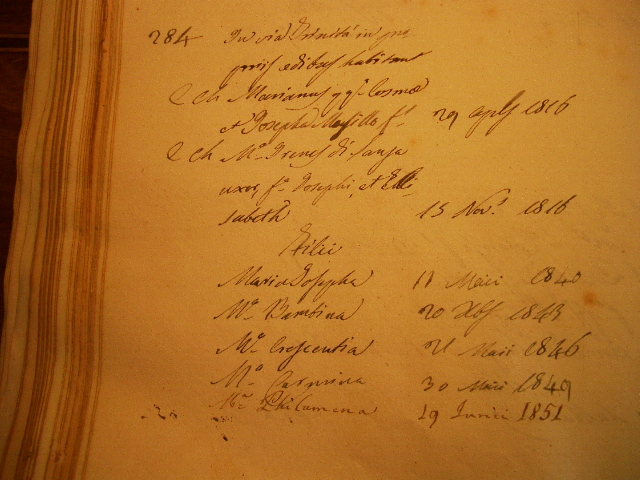 284 In via Trinità in pro
priis edibus habitant
C Ch Marianus q q.m Cosmæ
et Josepha Masillo f.s 29 aplis 1816
C Ch M.a Irenes di
uxor, f.a Josephi, et Eli
sabeth 15 Nov.s 1816
Filii
Maria Josepha 11 Maii 1840
M.a Bambina 20 Xbs 1843
M.a Crescentia 21 Maii 1846
M.a Carmina 30 Maii 1849
M.a Philumena 19 Junii 1851